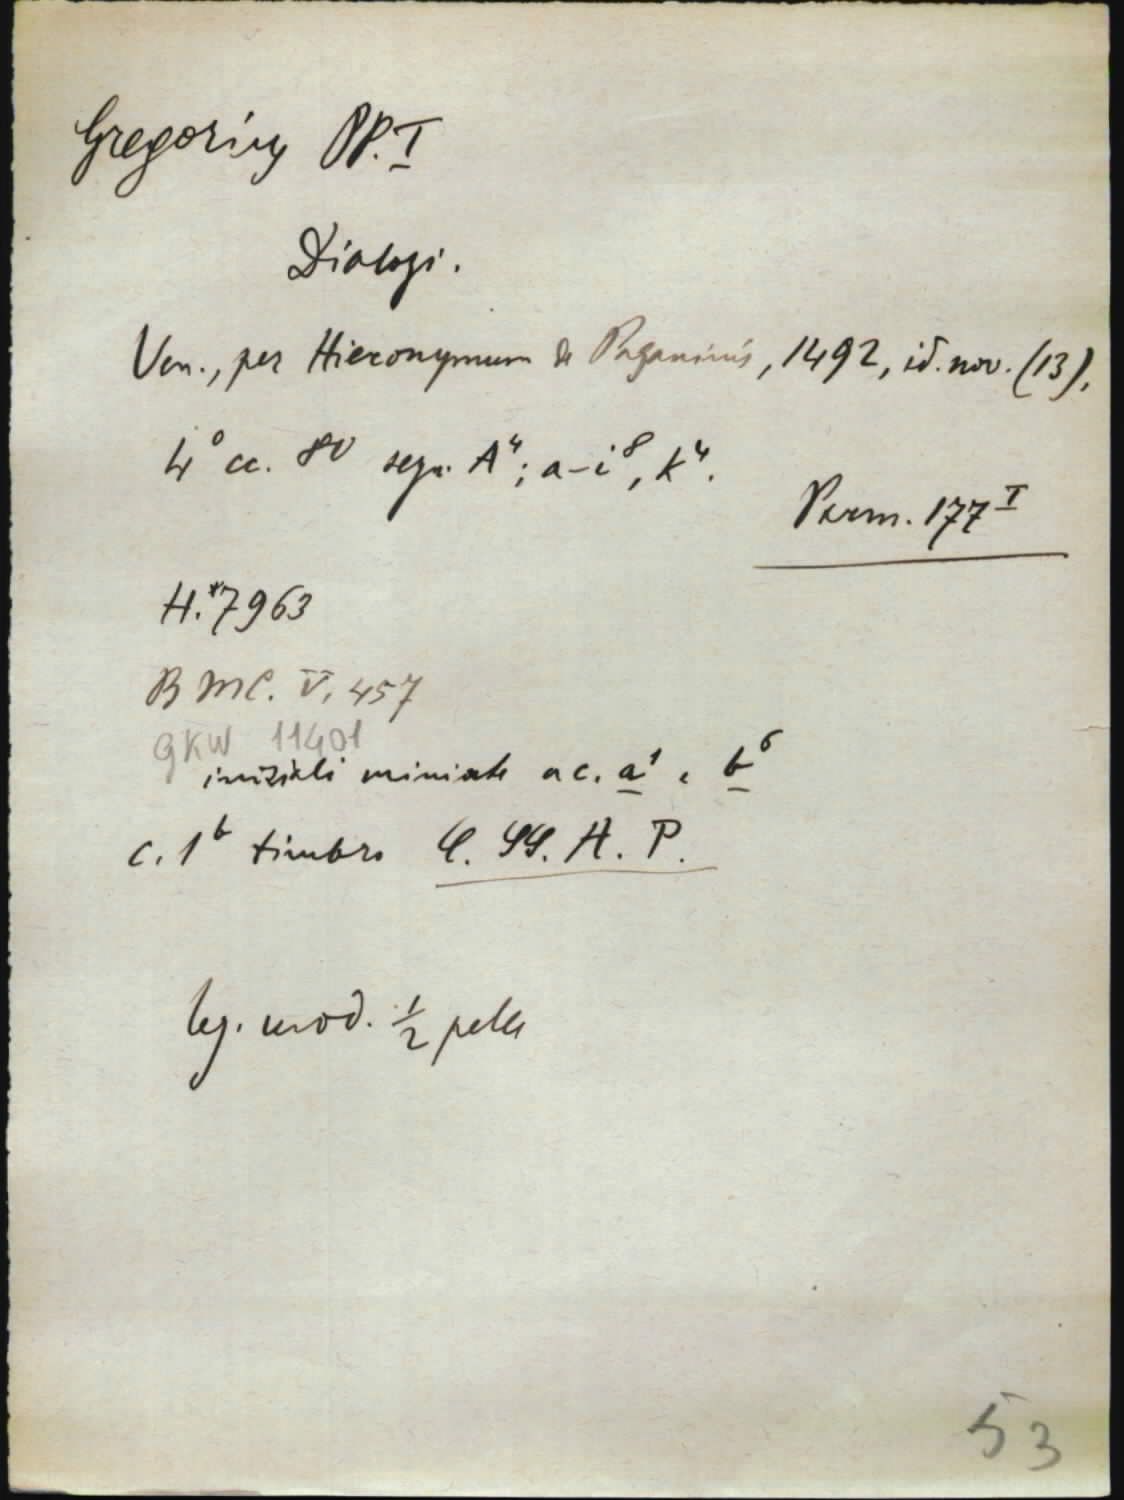 Gregorius PP. I
Dialogi.
Ven., per Hieronymum de Paganinis, 1492, id. nov. (13),
4° cc. 80 segn. A⁴; a-i⁸, k⁴.
Parm. 177 I
H.*7963
BMC. V, 457
GKW 11401
iniziali miniate a c. a¹ e b⁶
c. 1ᵇ timbro C. SS. A. P.
leg. mod. ½ pelle
53